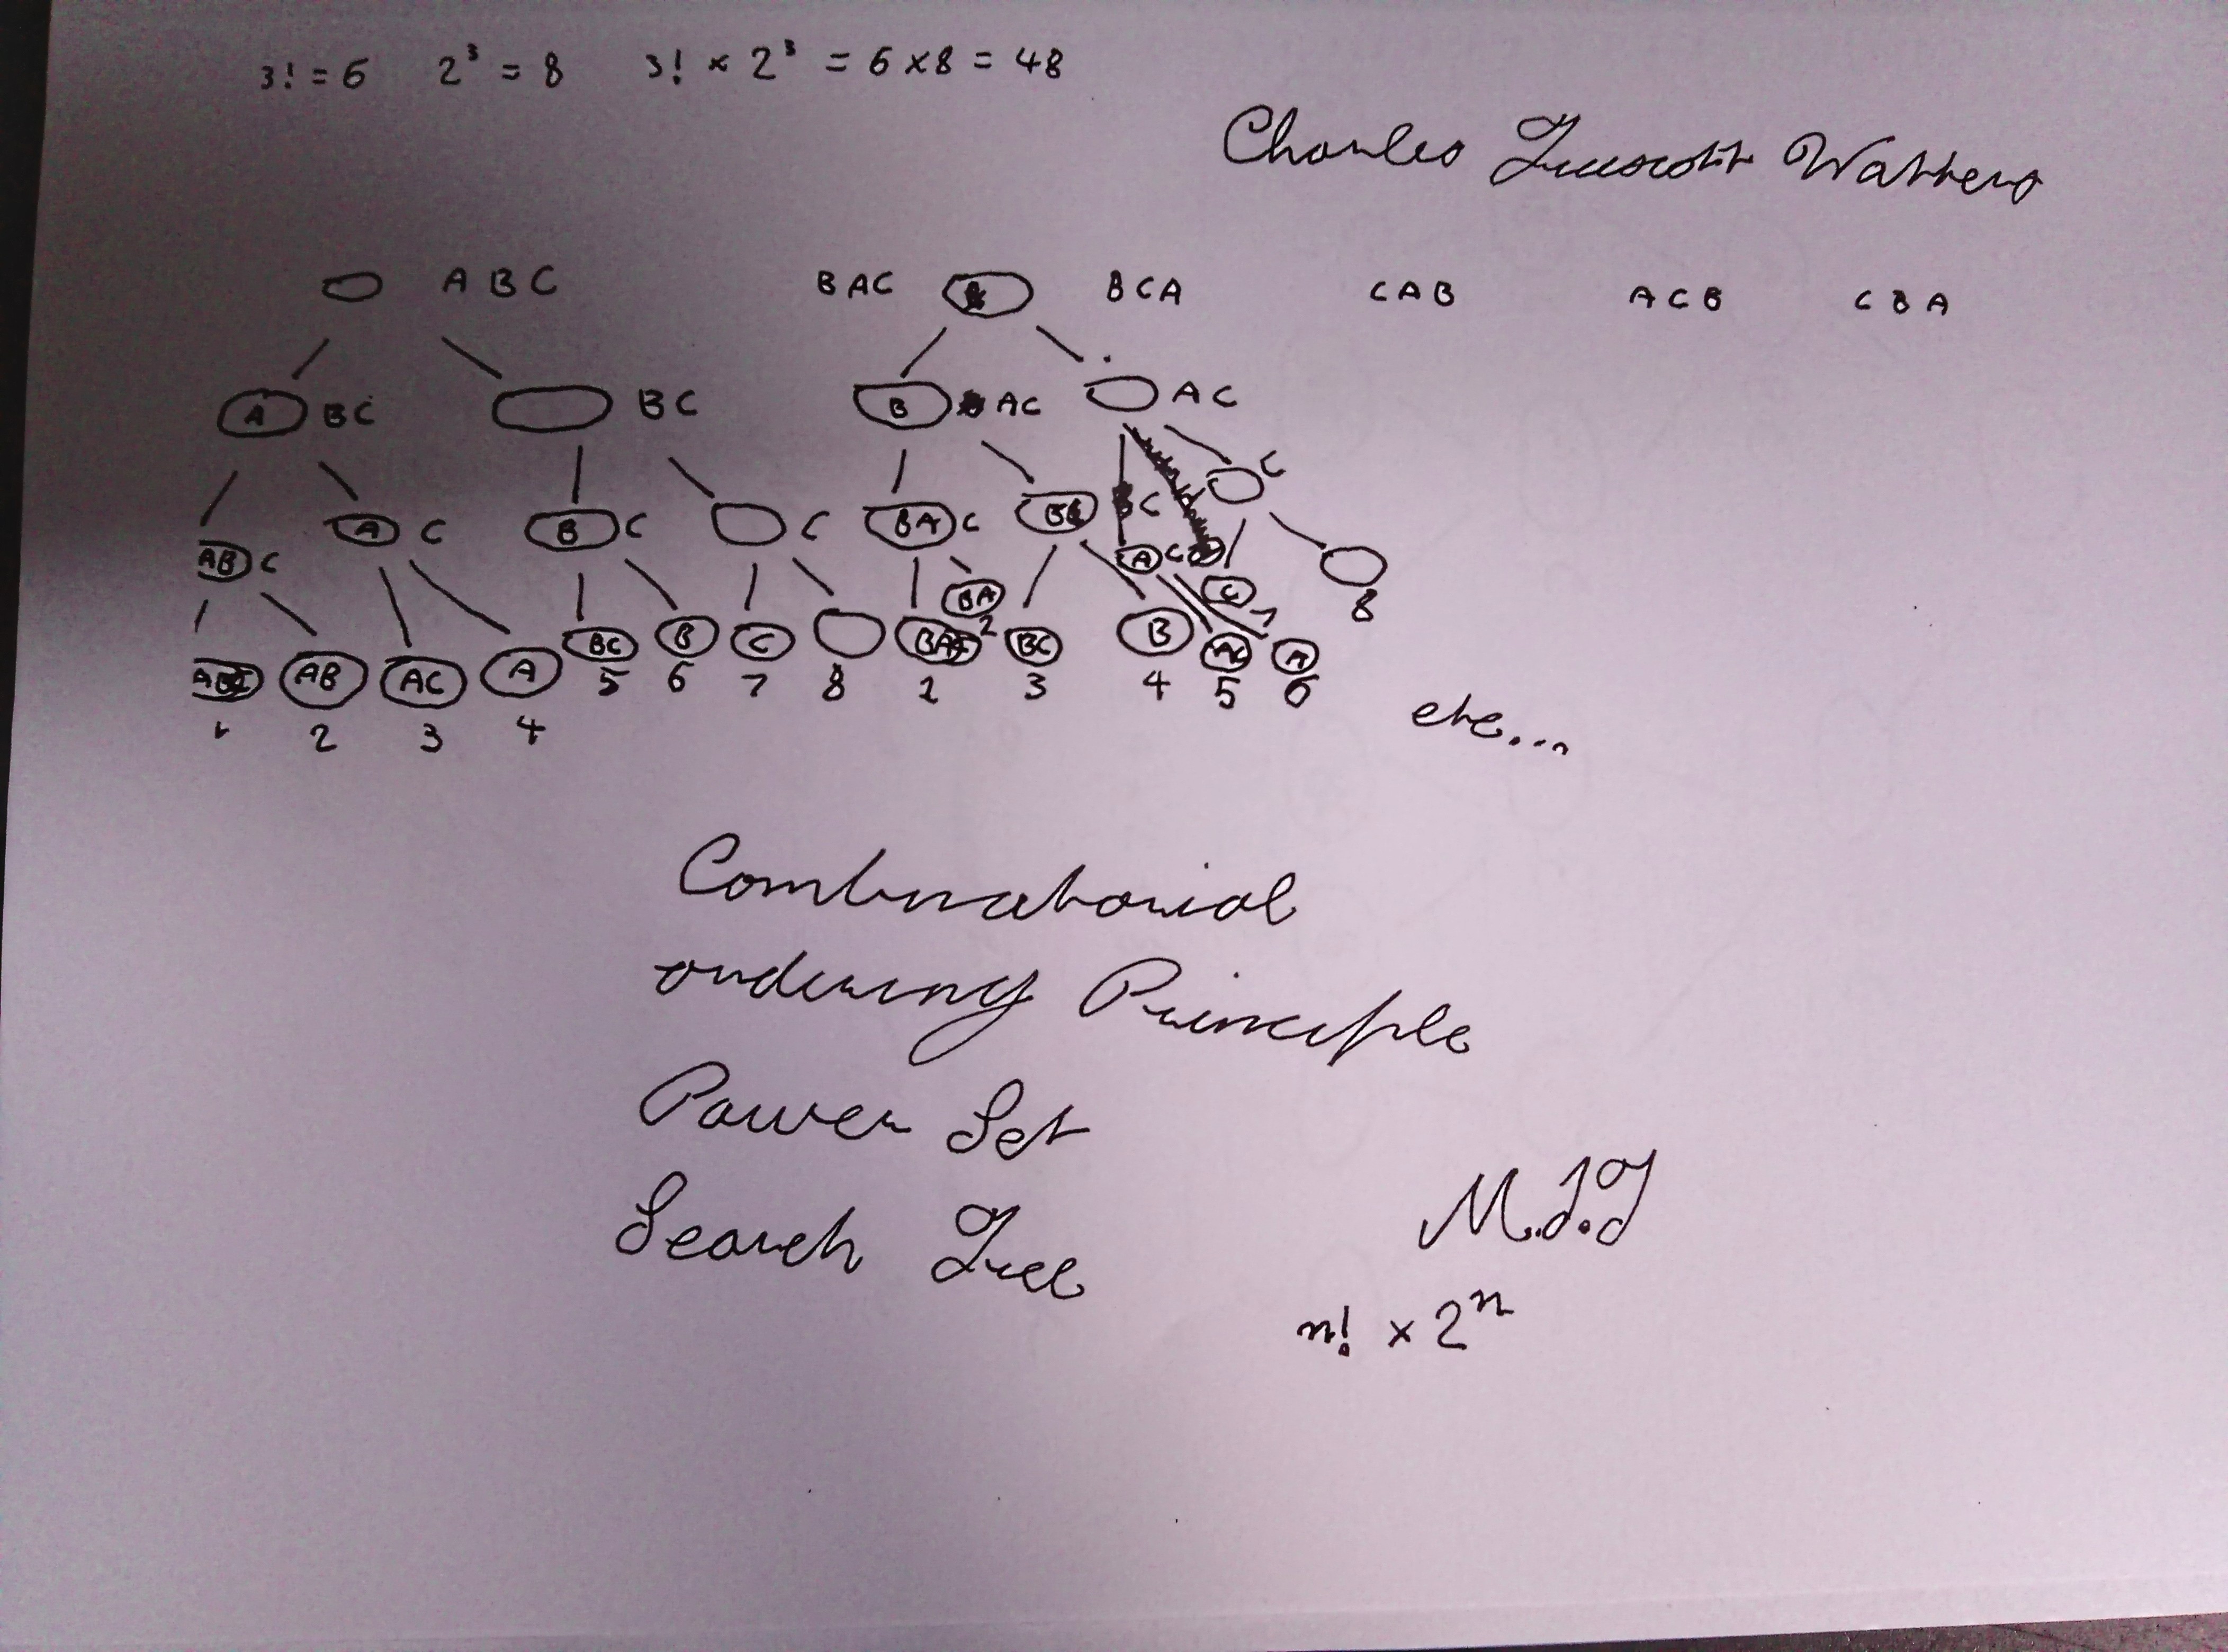 3! = 6 2³ = 8 3! × 2³ = 6 × 8 = 48
Charles Truscott Watters
A B C BAC BCA CAB ACB CBA
A BC BC B AC AC
AB C A C B C C BA C B C C
A C C
BA 2
ABC AB AC A BC B C BAC BC B AC A
1 2 3 4 5 6 7 8 1 3 4 5 6 7 8
etc...
Combinatorial
ordering Principle
Power Set
Search Tree
M.I.T
n! × 2ⁿ